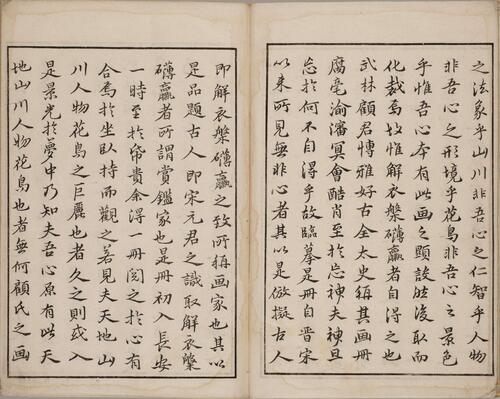 之法象乎山川非吾心之仁智乎人物
非吾心之形境乎花鳥非吾心之景色
乎惟吾心本有此画之顯設然後取而
化裁焉故惟解衣槃礴臝者自得之也
武林顧君博雅好古全太史稱其画冊
腐毫渝瀋冥會酷肖至扵忘神夫神且
忘扵何不自得乎故臨摹是冊自晋宋
以来所見無非心者其以是倣擬古人
即解衣槃礴臝之致所稱画家也其以
是品題古人即宋元君之識取解衣槃
礴臝者所謂賞鑑家也是冊初入長安
一時至扵帋貴余得一冊閲之扵心有
合焉扵坐卧持而觀之若見夫天地山
川人物花鳥之巨麗也者久之則或入
是景光扵夢中乃知夫吾心原有此天
地山川人物花鳥也者無何顧氏之画